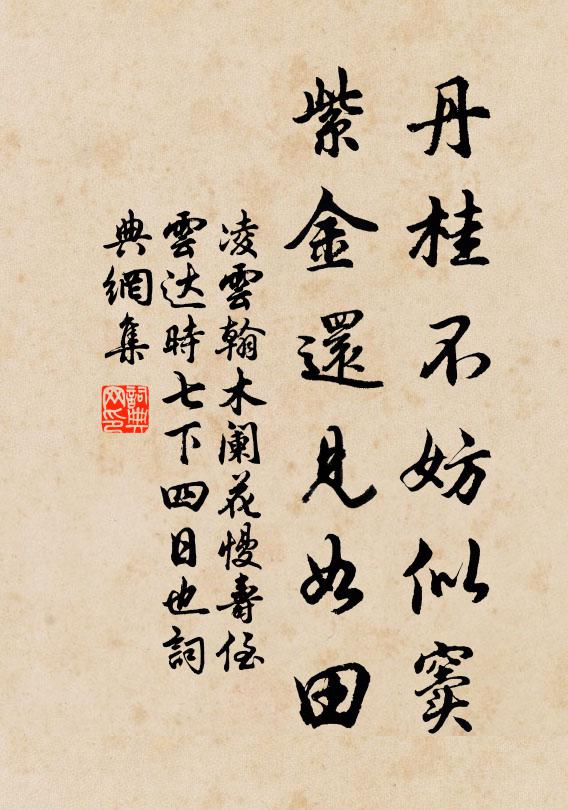 丹桂不妨似窦
紫金還見如田
凌雲翰木阑花慢壽侄
雲达時七下四日也詞
典網集
詞典网印